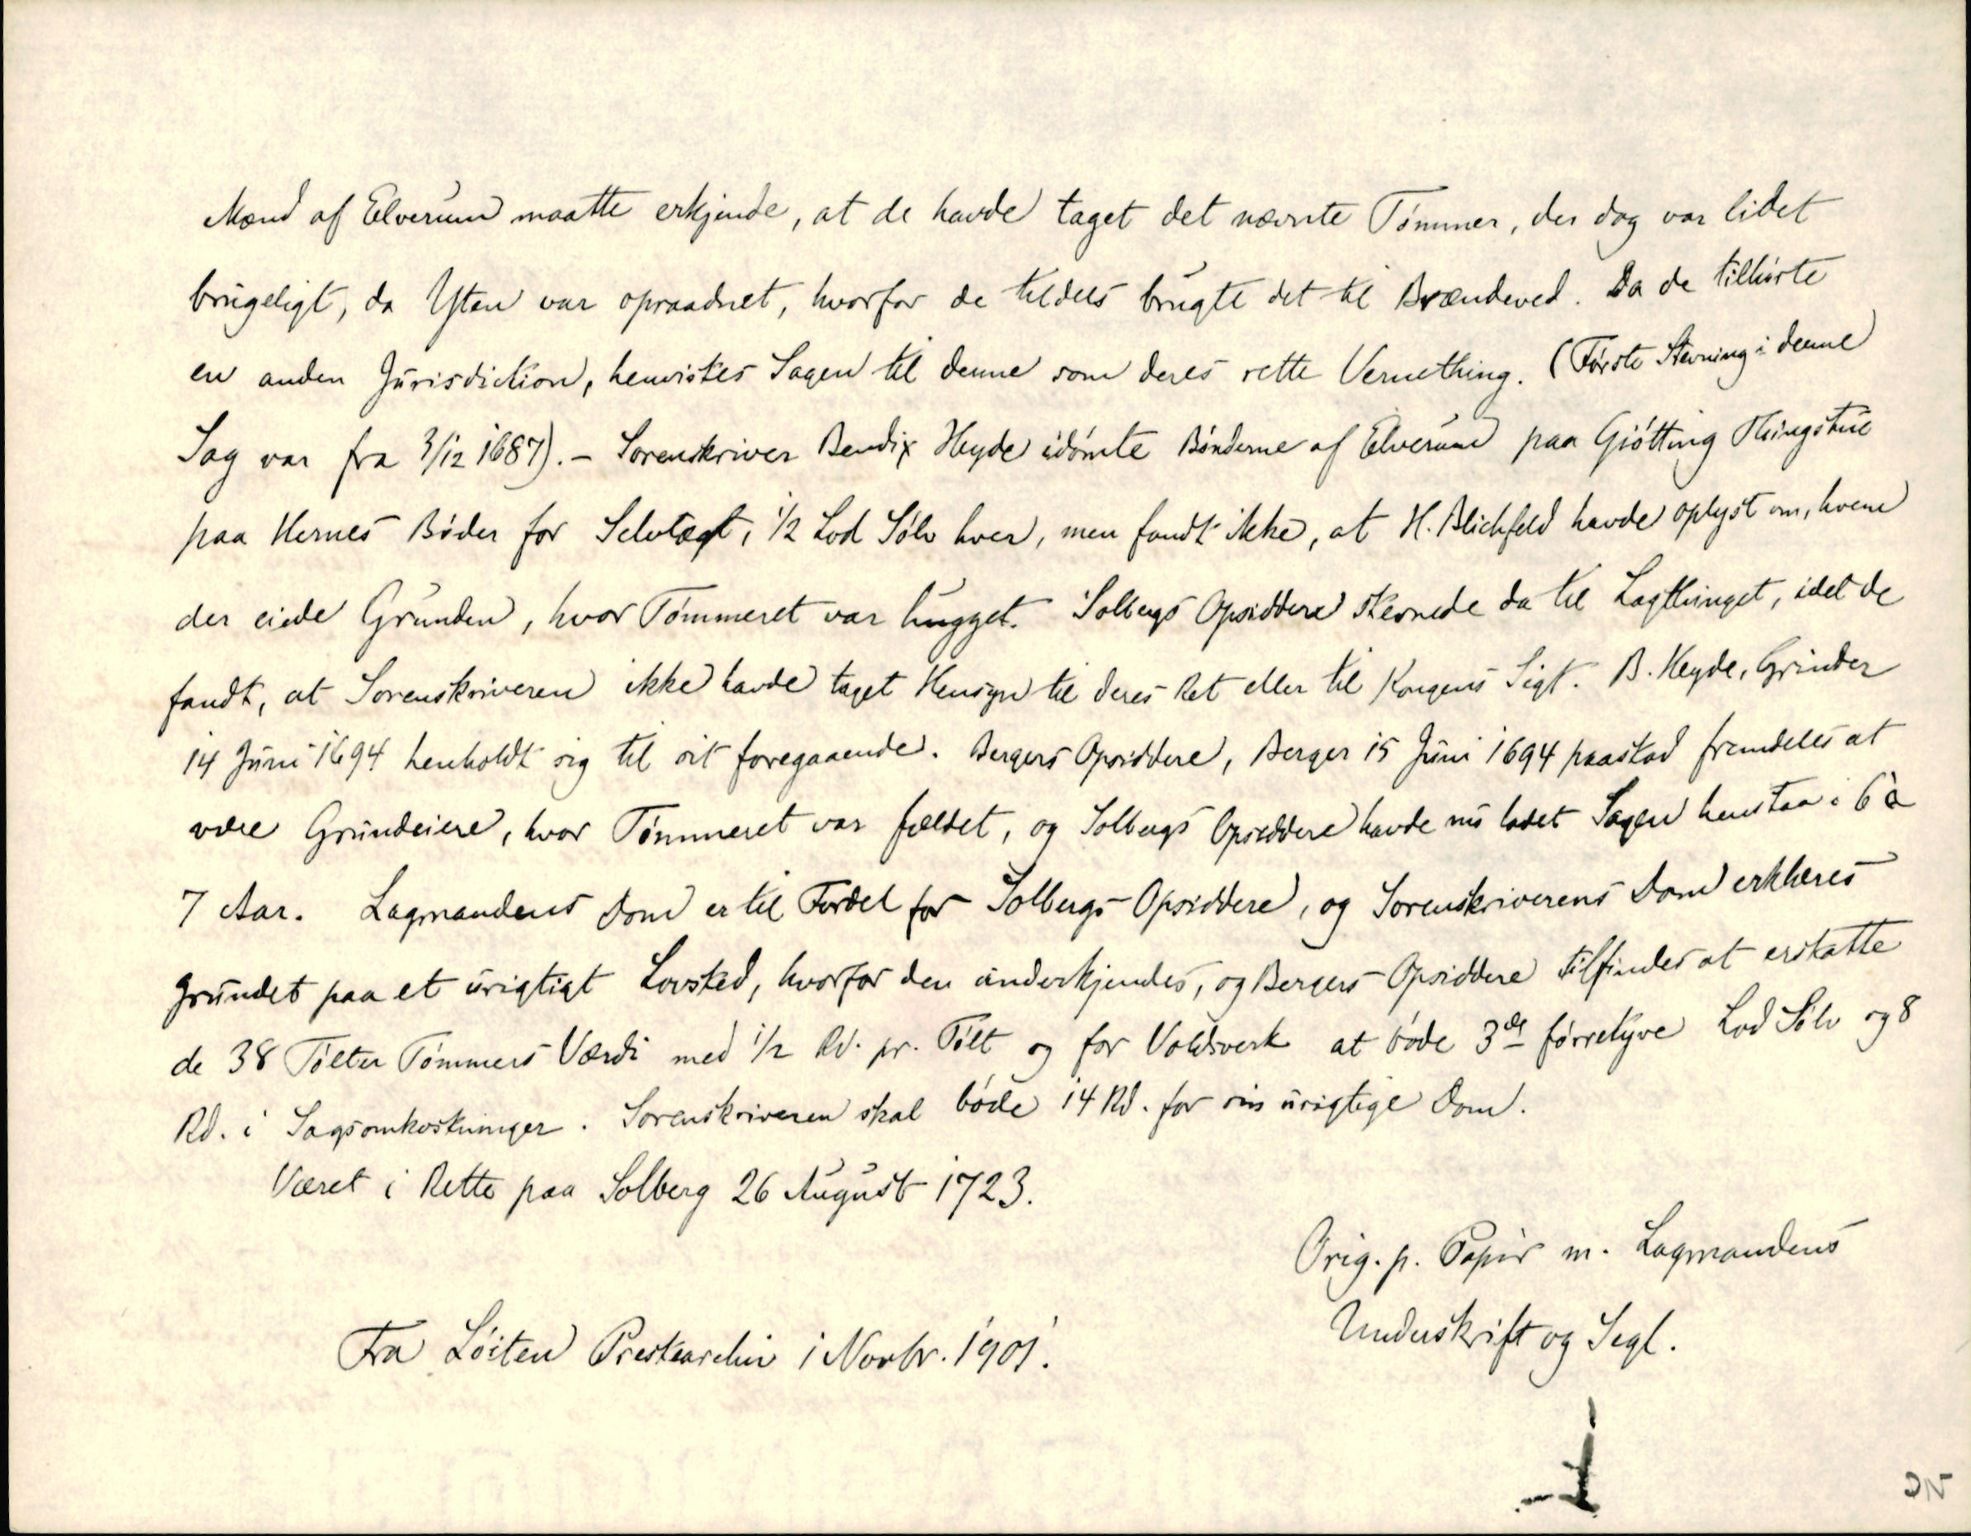 Mænd af Elverum maatte erkjende, at de havde taget det nævnte Tømmer, der dog var lidet
brugeligt, da Yten var opraadnet, hvorfor de tildels brugte det til Brændeved. Da de tilhørte
en anden Jurisdiction, henvistes Sagen til denne som deres rette Vernething. (Første Stevning i denne
Sag var fra 3/12 1687). – Sorenskriver Bendix Heyde idømte Bønderne af Elverum paa Gjøtting Thingstue
paa Hernes Bøder for Selvtægt, 1/2 Lod Sølv hver, men fandt ikke, at H. Blichfeld havde oplyst om, hvem
der eiede Grunden, hvor Tømmeret var hugget. Solbergs Opsiddere stevnede da til Lagthinget, idet de
fandt, at Sorenskriveren ikke havde taget Hensyn til deres Ret eller til Kongens Sigt. B. Heyde, Grinder
14 Juni 1694 henholdt sig til sit foregaaende. Bergers Opsiddere, Berger 15 Juni 1694 paastod fremdeles at
være Grundeiere, hvor Tømmeret var fældet, og Solbergs Opsiddere havde nu ladet Sagen henstaa i 6 à
7 Aar. Lagmandens Dom er til Fordel for Solbergs Opsiddere, og Sorenskriverens Dom erklæres
grundet paa et urigtigt Lovsted, hvorfor den underkjendes, og Bergers Opsiddere tilfindes at erstatte
de 38 Tølter Tømmers Værdi med 1/2 Rd. pr. Tølt og for Voldsverk at bøde 3de førretyve Lod Sølv og 8
Rd. i Sagsomkostninger. Sorenskriveren skal bøde 14 Rd. for sin urigtige Dom.
Været i Rette paa Solberg 26 August 1723.
Orig. p. Papir m. Lagmandens
Underskrift og Segl.
Fra Løiten Prestearchiv i Novbr. 1901.